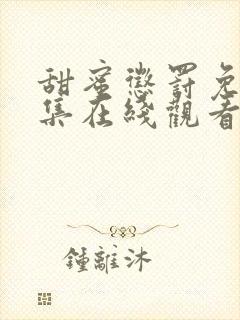 甜蜜懲罰免
集在綫觀看
鍾離沐